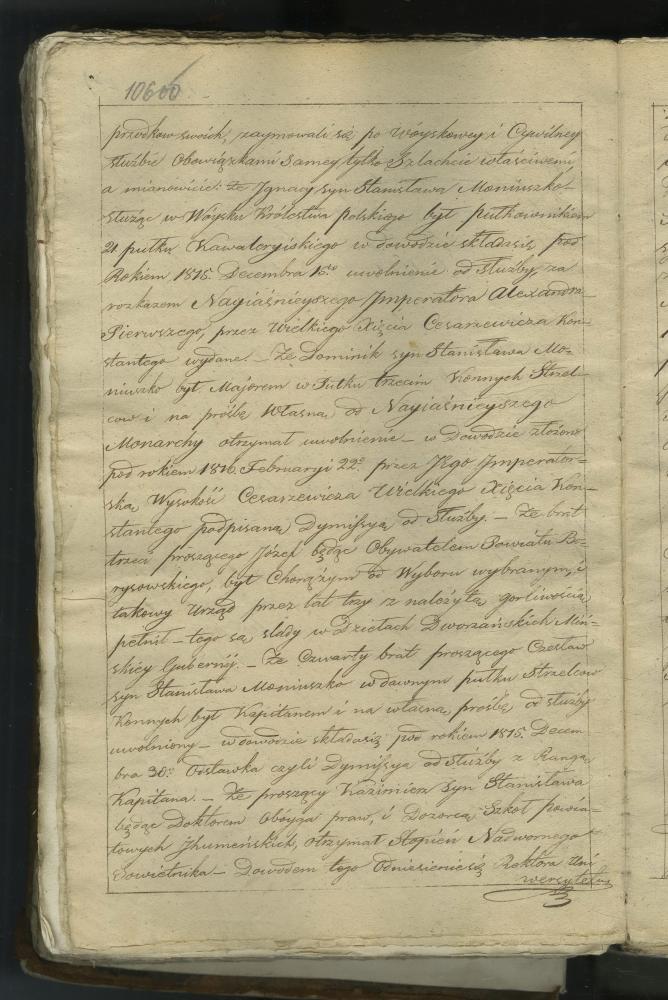 10600
przodkow swoich, zaymowali się po Woyskowey i Cywilney
służbie Obowiązkami samey tylko Szlachcie właściwemi
a mianowicie: że Ignacy syn Stanisława Moniuszko
służąc w Woysku Królestwa polskiego był pułkownikiem
21 pułku Kawaleryiskiego w dowodzie składa się pod
Rokiem 1815. Decembra 15o uwolnienie od służby, za
rozkazem Nayiaśnieyszego Imperatora Alexandra
Pierwszego, przez Wielkiego Xięcia Cesarzewicza Kon-
stantego wydane. – Że Dominik syn Stanisława Mo-
niuszko był Majorem w Pułku trzecim Konnych Strzel-
cow i na prośbę własną od Nayiaśnieyszego
Monarchy otrzymał uwolnienie – w Dowodzie złożono
pod rokiem 1816. Februaryi 22o przez Jego Imperator-
ską Wysokość Cesarzewicza Wielkiego Xięcia Kon-
stantego podpisaną Dymissyą od Służby. – Że brat
trzeci proszącego Józef będąc Obywatelem Powiatu Bo-
rysowskiego, był Chorążym od Wyboru wybranym, i
takowy Urząd przez lat trzy z należytą gorliwością
pełnił – tego są ślady w Dziełach Dworzańskich Miń-
skiey Gubernij. – Że Czwarty brat proszącego Czesław
syn Stanisława Moniuszko w dawnym pułku Strzelcow
Konnych był Kapitanem i na własną prośbę od służby
uwolniony – w dowodzie składa się pod rokiem 1815. Decem
bra 30o Odstawka czyli Dymissya od Służby z Rangą
Kapitana. – Że proszący Kazimierz syn Stanisława
będąc Doktorem Oboyga praw, i Dozorcą Szkoł powia-
towych Ihumeńskich, otrzymał Stopień Nadwornego
Sowietnika – Dowodem tego Odniesienie się Rektora Uni
wersytetu